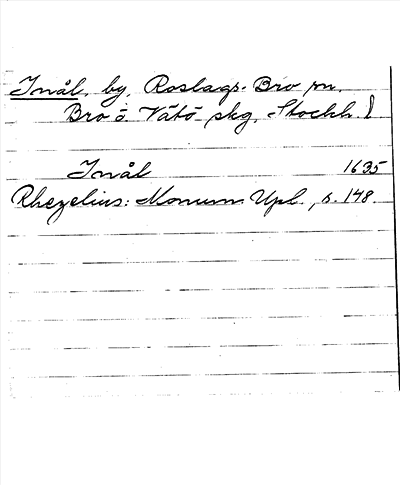 Inål, by, Roslags-Bro sn.
Bro o. Vätö skg, Stockh. l
Inål 1635
Rhezelius: Monum. Upl., s. 148.